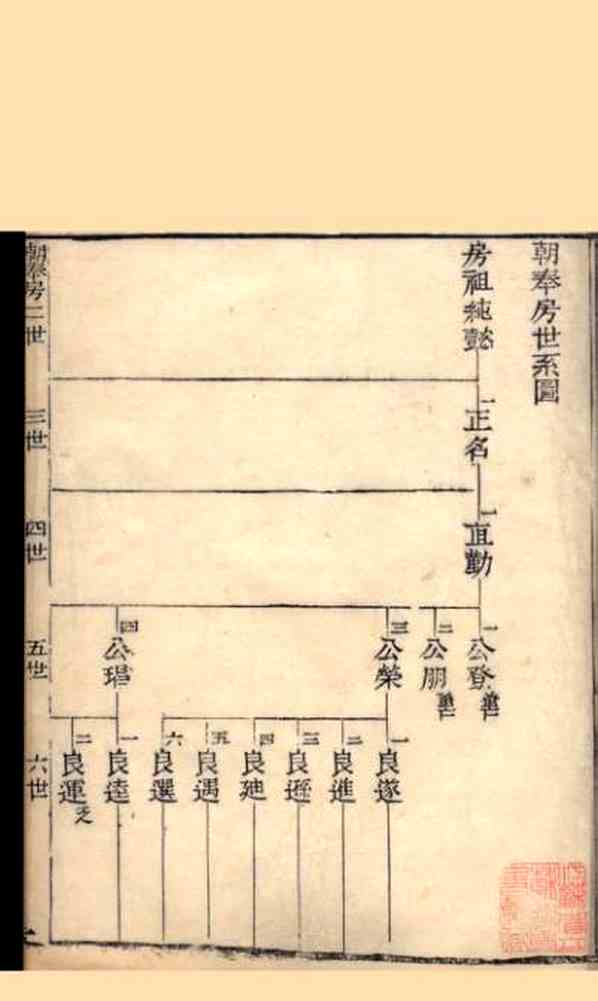 朝奉房世系圖
朝奉房二世
房祖純懿
三世
一 正名
四世
一 直勤
五世
一 公登
二 公朋
三 公榮
四
六世
一 良遂
二 良進
三 良遜
四
五 良遇
六 良選
一 良逵
二 良運